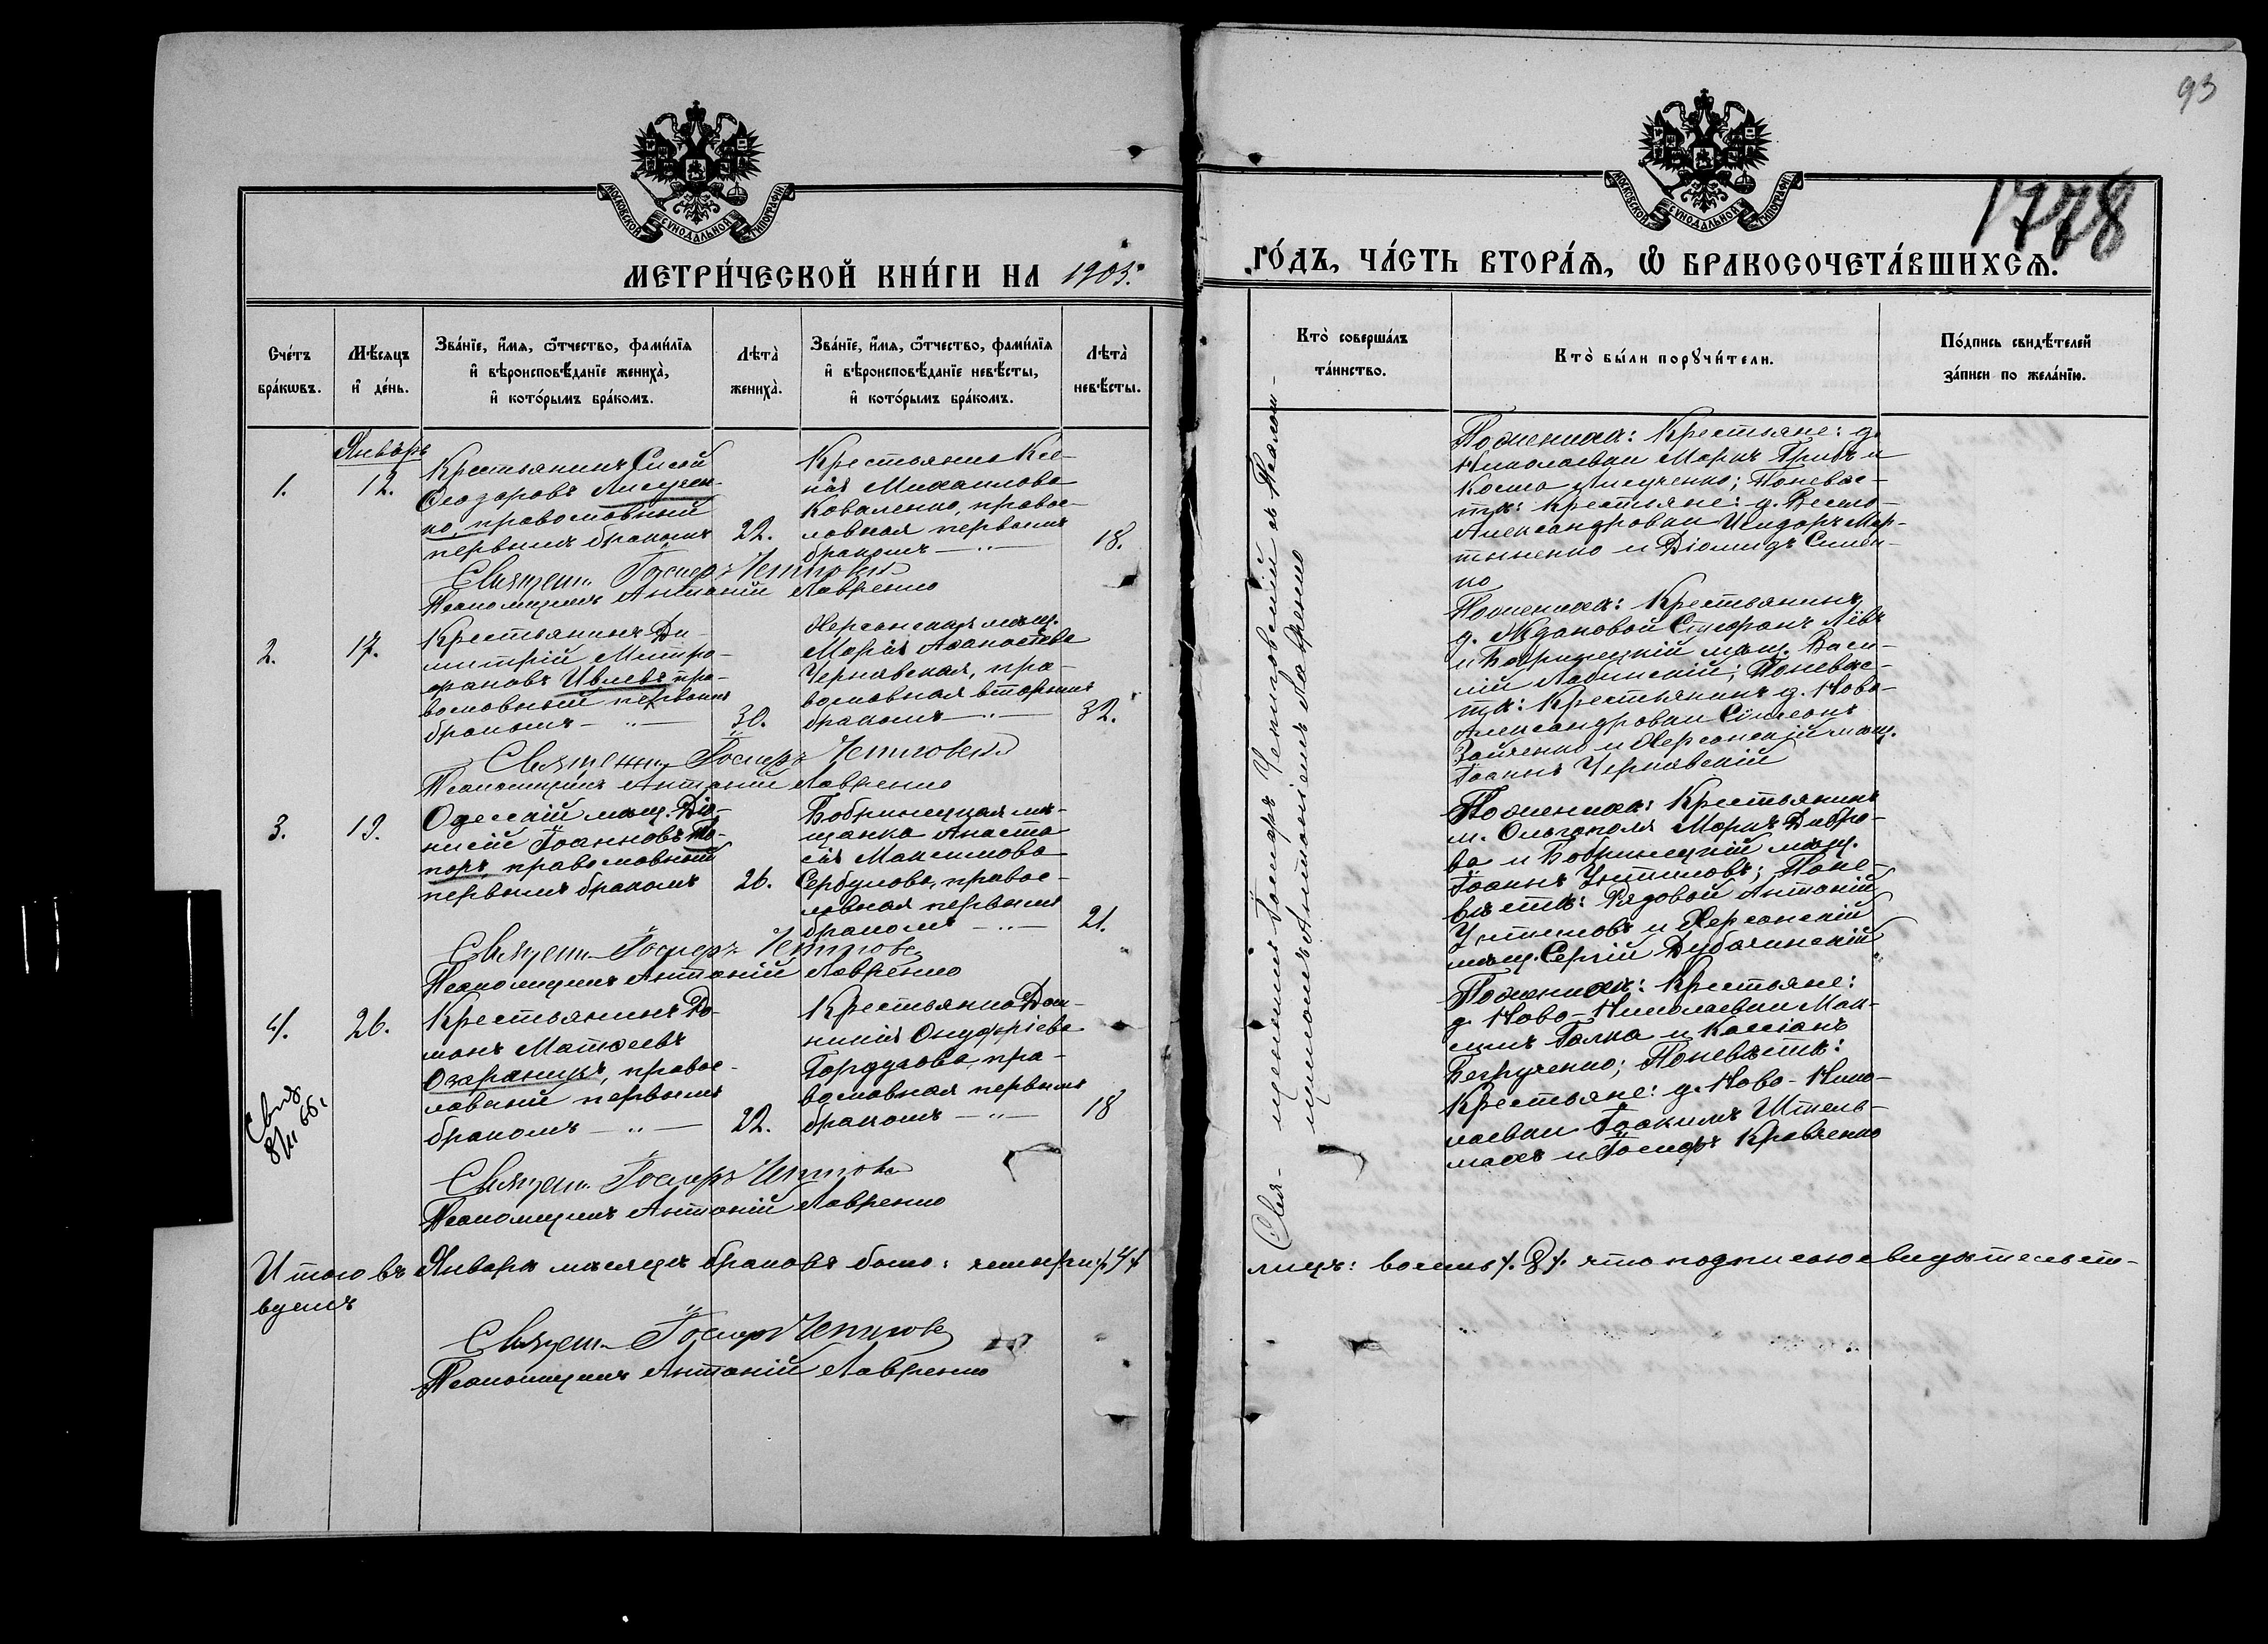 93
1778
МОСКОВСКОЙ СѴНОДАЛЬНОЙ ТИПОГРАФІИ
МОСКОВСКОЙ СѴНОДАЛЬНОЙ ТИПОГРАФІИ
МЕТРИ́ЧЕСКОЙ КНИ́ГИ НА 1905.
ГО́ДЪ, ЧА́СТЬ ВТОРА́Я, Ѡ БРАКОСОЧЕТА́ВШИХСЯ.
Сче́тъ бра́кωвъ.
Мѣ́сяцъ и҆ де́нь.
Зва́нїе, и҆́мя, ѻ҆́тчество, фами́лїя
и҆ вѣроисповѣ́данїе жениха̀,
и҆ кото́рымъ бра́комъ.
Лѣта̀ жениха̀.
Зва́нїе, и҆́мя, ѻ҆́тчество, фами́лїя
и҆ вѣроисповѣ́данїе невѣ́сты,
и҆ кото́рымъ бра́комъ.
Лѣта̀ невѣ́сты.
Кто̀ соверша́лъ
та́инство.
Кто̀ бы́ли порꙋчи́тели.
По́дпись свидѣ́телей
за́писи по жела́нїю.
Январь
1.
12.
Крестьянинъ Сисой
Лисучен-
ко, православный
первымъ бракомъ
22.
Крестьянка Ксе-
нія Михаилова
Коваленко, правос-
лавная первымъ
бракомъ — „ —
18.
Священ. Іосифъ
Псаломщикъ Антоній Лавренко
По женихѣ: Крестьяне: д.
Николаевки Маркъ Грибъ и
Косма Лисученко; По невѣс-
тѣ: крестьяне: д. Весело-
Александровки Исидоръ Мар-
тыненко и Діомидъ Симен-
ко
2.
17.
Крестьянинъ Ди-
митрій Митро-
фановъ Ивлевъ пра-
вославный первымъ
бракомъ — „ —
30.
Херсонская мѣщ.
Марія Аѳанасіева
Чернявская, пра-
вославная вторымъ
бракомъ — „ —
32.
Священн. Іосифъ
Псаломщикъ Антоній Лавренко
По женихѣ: Крестьянинъ
д. Ждановой Стефанъ Лёвъ
и Бобринецкій мѣщ. Васи-
лій Лабинскій; По невѣс-
тѣ: Крестьянинъ д. Ново-
Александровки Сѵмеонъ
Зайченко и Херсонскій мѣщ.
Іоаннъ Чернявскій
3.
19.
Одесскій мѣщ. Діо-
нисій Іоанновъ То-
поръ, православный
первымъ бракомъ
26.
Бобринецкая мѣ-
щанка Анаста-
сія Максимова
Сербулова, правос-
лавная первымъ
бракомъ — „ —
21.
Священ. Іосифъ
Псаломщикъ Антоній Лавренко
По женихѣ: Крестьянинъ
м. Ольгополя Маркъ Дибро-
ва и Бобринецкій мѣщ.
Іоаннъ Устиновъ; По не-
вѣстѣ: Рядовой Антоній
Устиновъ и Херсонскій
мѣщ. Сергій Дубачинскій
4.
26.
Крестьянинъ Ро-
манъ Матѳеевъ
Озараницъ, правос-
лавный первымъ
бракомъ — „ —
22.
Крестьянка Дом-
никія Онуфріева
Гордзова, пра-
вославная первымъ
бракомъ — „ —
18
Священ. Іосифъ
Псаломщикъ Антоній Лавренко
По женихѣ: Крестьяне:
д. Ново-Николаевки Мак-
симъ Галка и Кассіанъ
Безрученко; По невѣстѣ:
Крестьяне: д. Ново-Нико-
лаевки Іоакимъ Штель-
махъ и Іосифъ Кравченко
Свя-
щенникъ Іосифъ съ Псалом-
щикомъ Антоніемъ Лавренко
Итого въ Январѣ мѣсяцѣ браковъ было: четыре /4/
лицъ: восемь /.8/. что подписью свидѣтельст-
вуемъ
Священ. Іосифъ
Псаломщикъ Антоній Лавренко